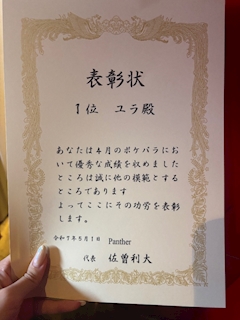 表彰状
1位 ユラ殿
あなたは4月のポケパラにお
いて優秀な成績を収めました
ところは誠に他の模範とする
ところであります
よってここにその功労を表彰
します。
令和7年5月1日 Panther
代表 佐曽利大